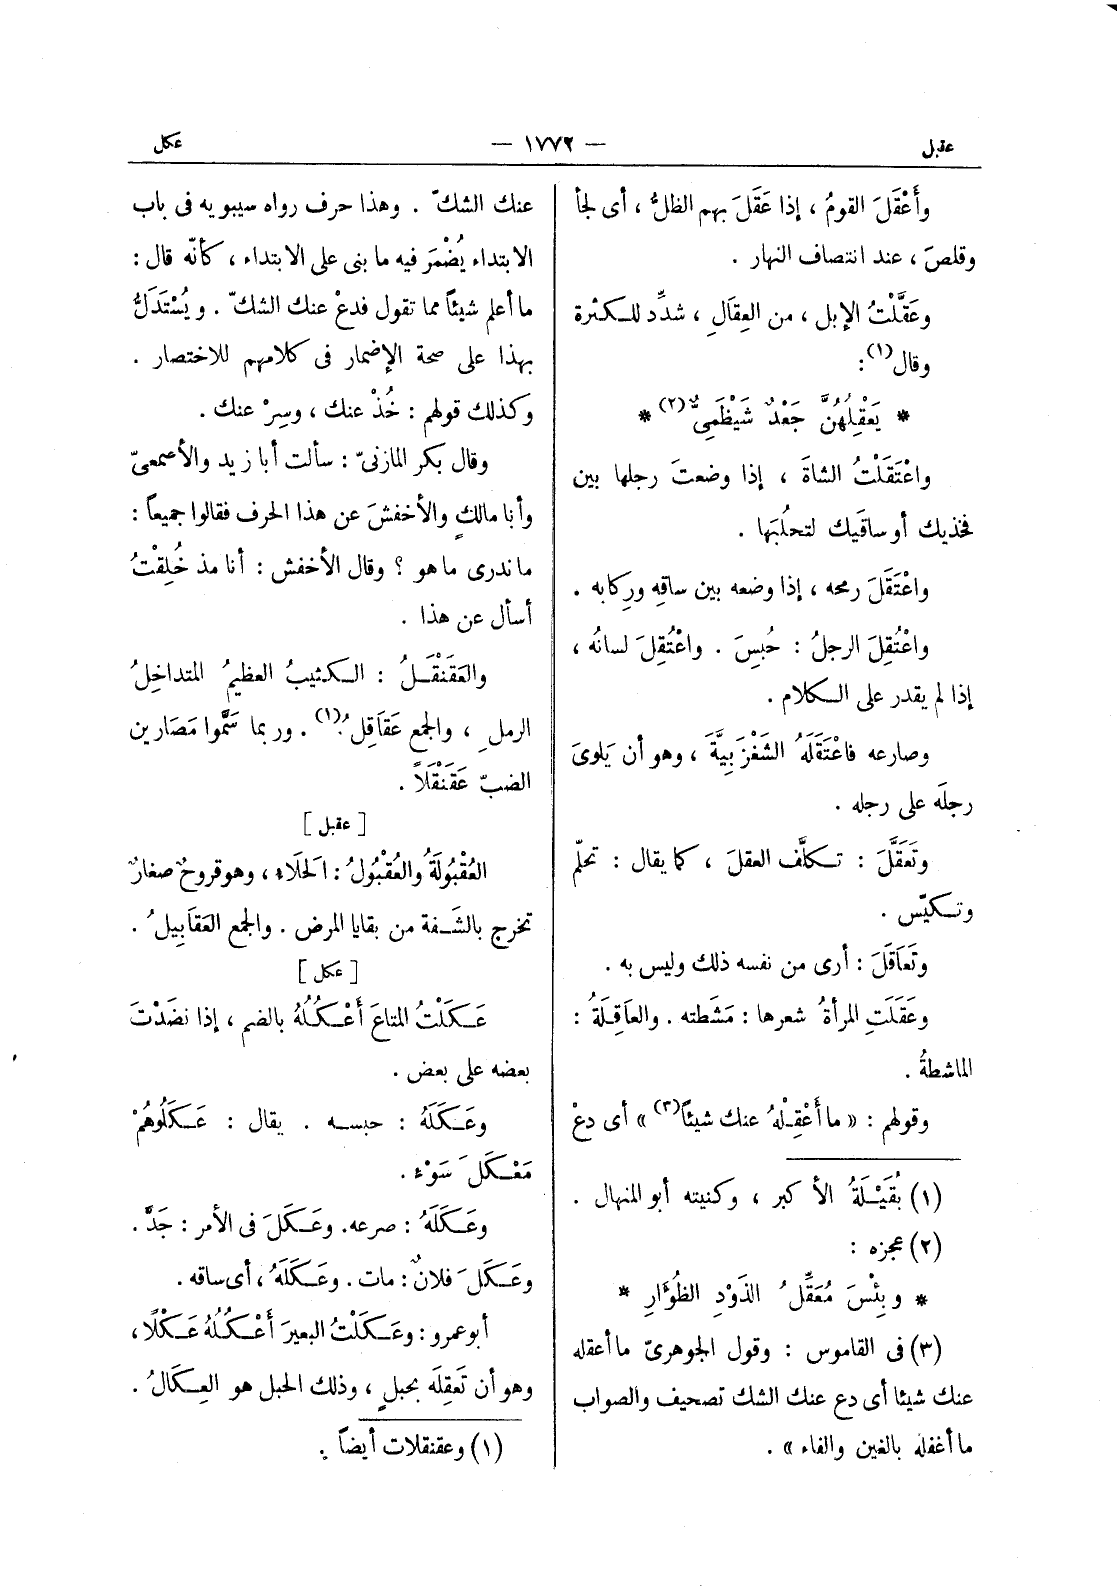 عقبل
— ١٧٧٢ —
عكل
وأَعْقَلَ القومُ ، إذا عَقَلَ بهم الظلُّ ، أى لجأ
وقلصَ ، عند انتصاف النهار .
وعَقَّلْتُ الإبل ، من العِقَالِ ، شدِّد للكثرة
وقال(١):
* يَعْقِلُهُنَّ جَعْدٌ شَيْظَمِىٌّ(٢) *
واعْتَقَلْتُ الشاةَ ، إذا وضعتَ رجلها بين
فخذيك أو ساقَيك لتحلُبَها .
واعْتَقَلَ رمحه ، إذا وضعه بين ساقِه ورِكابه .
واعْتُقِلَ الرجلُ : حُبِسَ . واعْتُقِلَ لسانُه ،
إذا لم يقدر على الكلام .
وصارعه فاعْتَقَلَهُ الشَغْزَبِيَّةَ ، وهو أن يَلوىَ
رجلَه على رجله .
وتَعَقَّلَ : تكلَّف العقلَ ، كما يقال : تحلّم
وتكيّس .
وتَعَاقَلَ : أرى من نفسه ذلك وليس به .
وعَقَلَتِ المرأةُ شعرها : مَشَطته . والعَاقِلَةُ :
الماشطةُ .
وقولهم : « ما أَعْقِلُهُ عنك شيئاً(٣) » أى دعْ
(١) بُقَيْلَةُ الأكبر ، وكنيته أبو المنهال .
(٢) عجزه :
* وبِئْسَ مُعَقِّلُ الذَوْدِ الظُؤَارِ *
(٣) فى القاموس : وقول الجوهرىّ ما أعقله
عنك شيئا أى دع عنك الشك تصحيف والصواب
ما أغفله بالغين والفاء » .
عنك الشكّ . وهذا حرف رواه سيبويه فى باب
الابتداء يُضْمَر فيه ما بنى على الابتداء ، كأنّه قال :
ما أعلم شيئاً مما تقول فدعْ عنك الشكّ . ويُسْتَدَلُّ
بهذا على صحة الإضمار فى كلامهم للاختصار .
وكذلك قولهم : خُذْ عنك ، وسِرْ عنك .
وقال بكر المازنىّ : سألت أبا زيد والأصمعىّ
وأبا مالكٍ والأخفشَ عن هذا الحرف فقالوا جميعاً :
ما ندرى ما هو ؟ وقال الأخفش : أنا مذ خُلِقْتُ
أسأل عن هذا .
والعَقَنْقَلُ : الكثيبُ العظيمُ المتداخِلُ
الرملِ ، والجمع عَقَاقِلُ(١) . وربما سَمَّوا مَصَارين
الضبّ عَقَنْقَلاً .
[ عقبل ]
العُقْبُولَةُ والعُقْبُولُ : الحَلَاءِ ، وهو قروحٌ صغارٌ
تخرج بالشَفة من بقايا المرض . والجمع العَقَابِيلُ .
[ عكل ]
عَكَلْتُ المتاعَ أَعْكُلُهُ بالضم ، إذا نضَدْتَ
بعضه على بعض .
وعَكَلَهُ : حبسه . يقال : عَكَلُوهُمْ
مَعْكَلَ سَوْءِ .
وعَكَلَهُ : صرعه. وعَكَلَ فى الأمر : جَدَّ .
وعَكَلَ فلانٌ : مات . وعَكَلَهُ ، أى ساقه .
أبو عمرو : وعَكَلْتُ البعيرَ أَعْكُلُهُ عَكْلًا ،
وهو أن تَعقِلَه بحبلٍ ، وذلك الحبل هو العِكَالُ .
(١) وعقنقلات أيضاً .